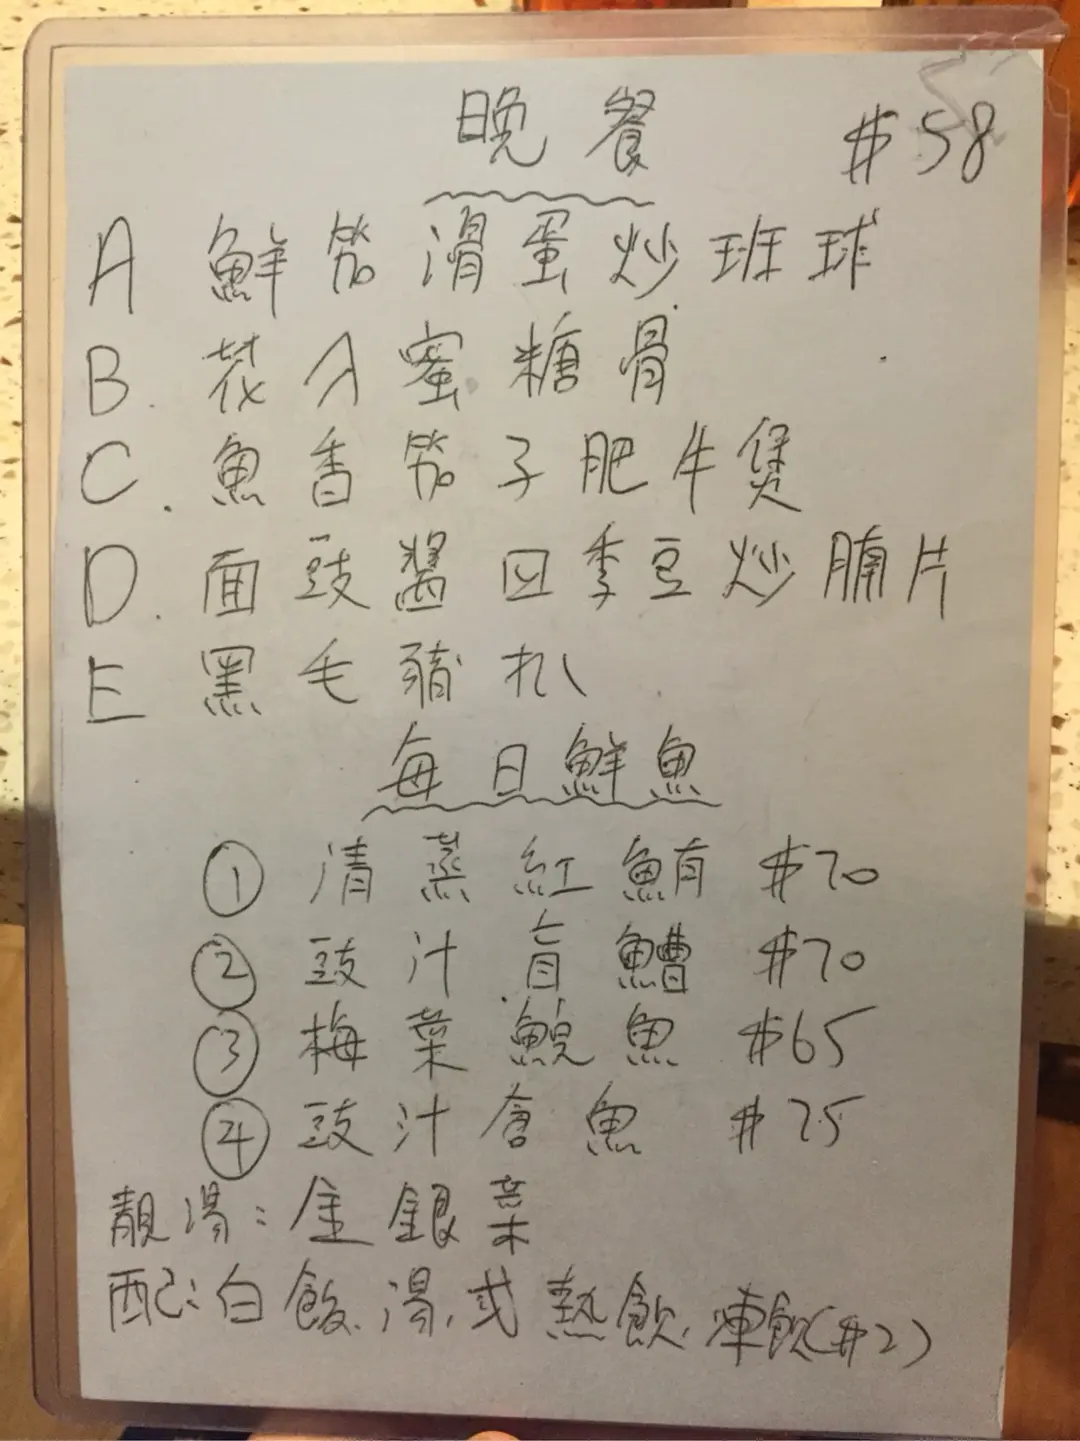 晚餐 $58
A 鮮笳滑蛋炒班球
B. 花人蜜糖骨
C. 魚香笳子肥牛煲
D. 面豉醬四季豆炒腩片
E 黑毛豬扒
每日鮮魚
① 清蒸紅鮪 $70
② 豉汁盲鰽 $70
③ 梅菜鯇魚 $65
④ 豉汁倉魚 $75
靚湯:金銀菜
配:白飯、湯,或熱飲,凍飲($2)